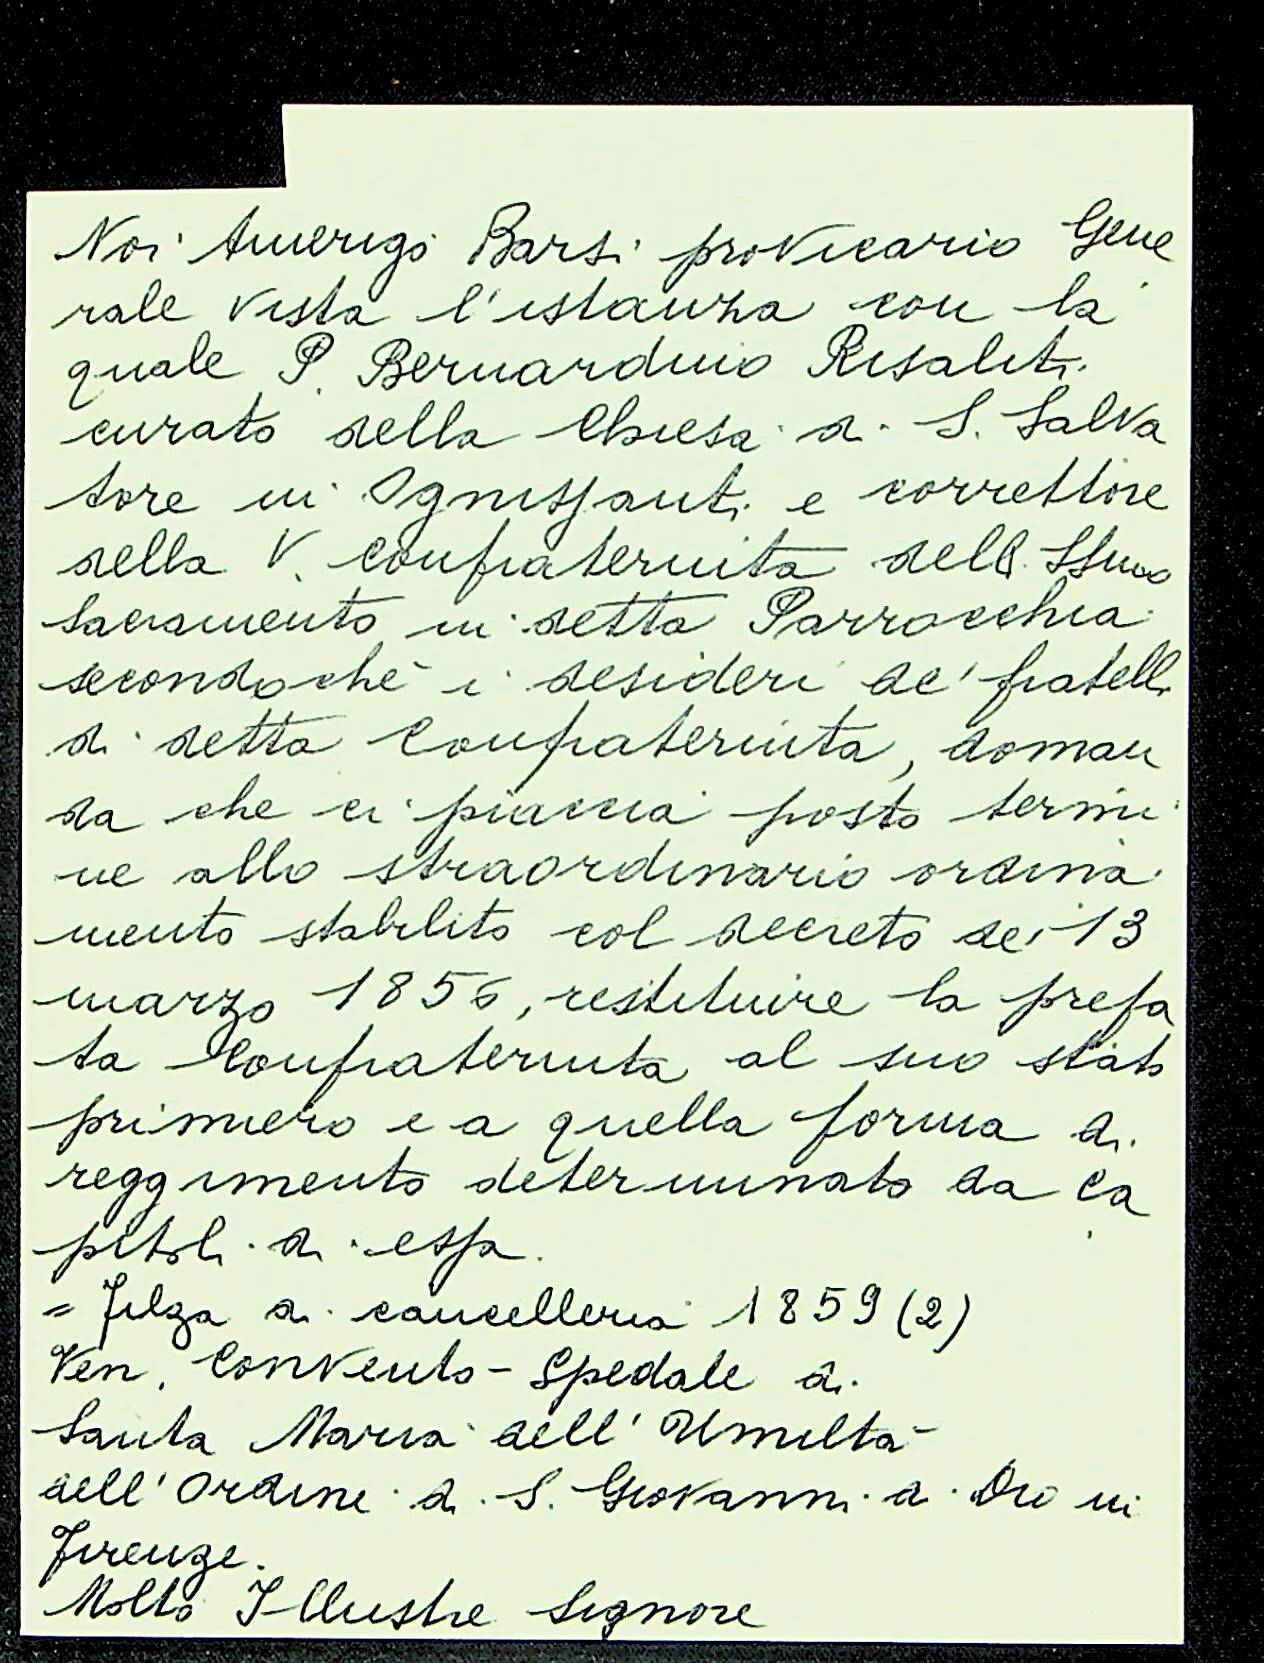 Noi Amerigo Barsi provicario Gene
rale vista l'istanza con la
quale P. Bernardino Risaliti
curato della Chiesa di S. Salva
tore in Ognissanti e correttore
della V. Confraternita dell SSmo
Sacramento in detta Parrocchia
secondoché i desideri de' fratelli
di detta Confraternita, doman
da che ci piaccia posto termi
ne allo straordinario ordina
mento stabilito col decreto dei 13
marzo 1856, restituire la prefa
ta Confraternita al suo stato
primiero e a quella forma di
reggimento determinato da ca
pitoli di essa.
= Filza di cancelleria 1859 (2)
Ven. Convento - Spedale di
Santa Maria dell' Umiltà
dell' Ordine di S. Giovanni di Dio in
Firenze.
Molto Illustre Signore